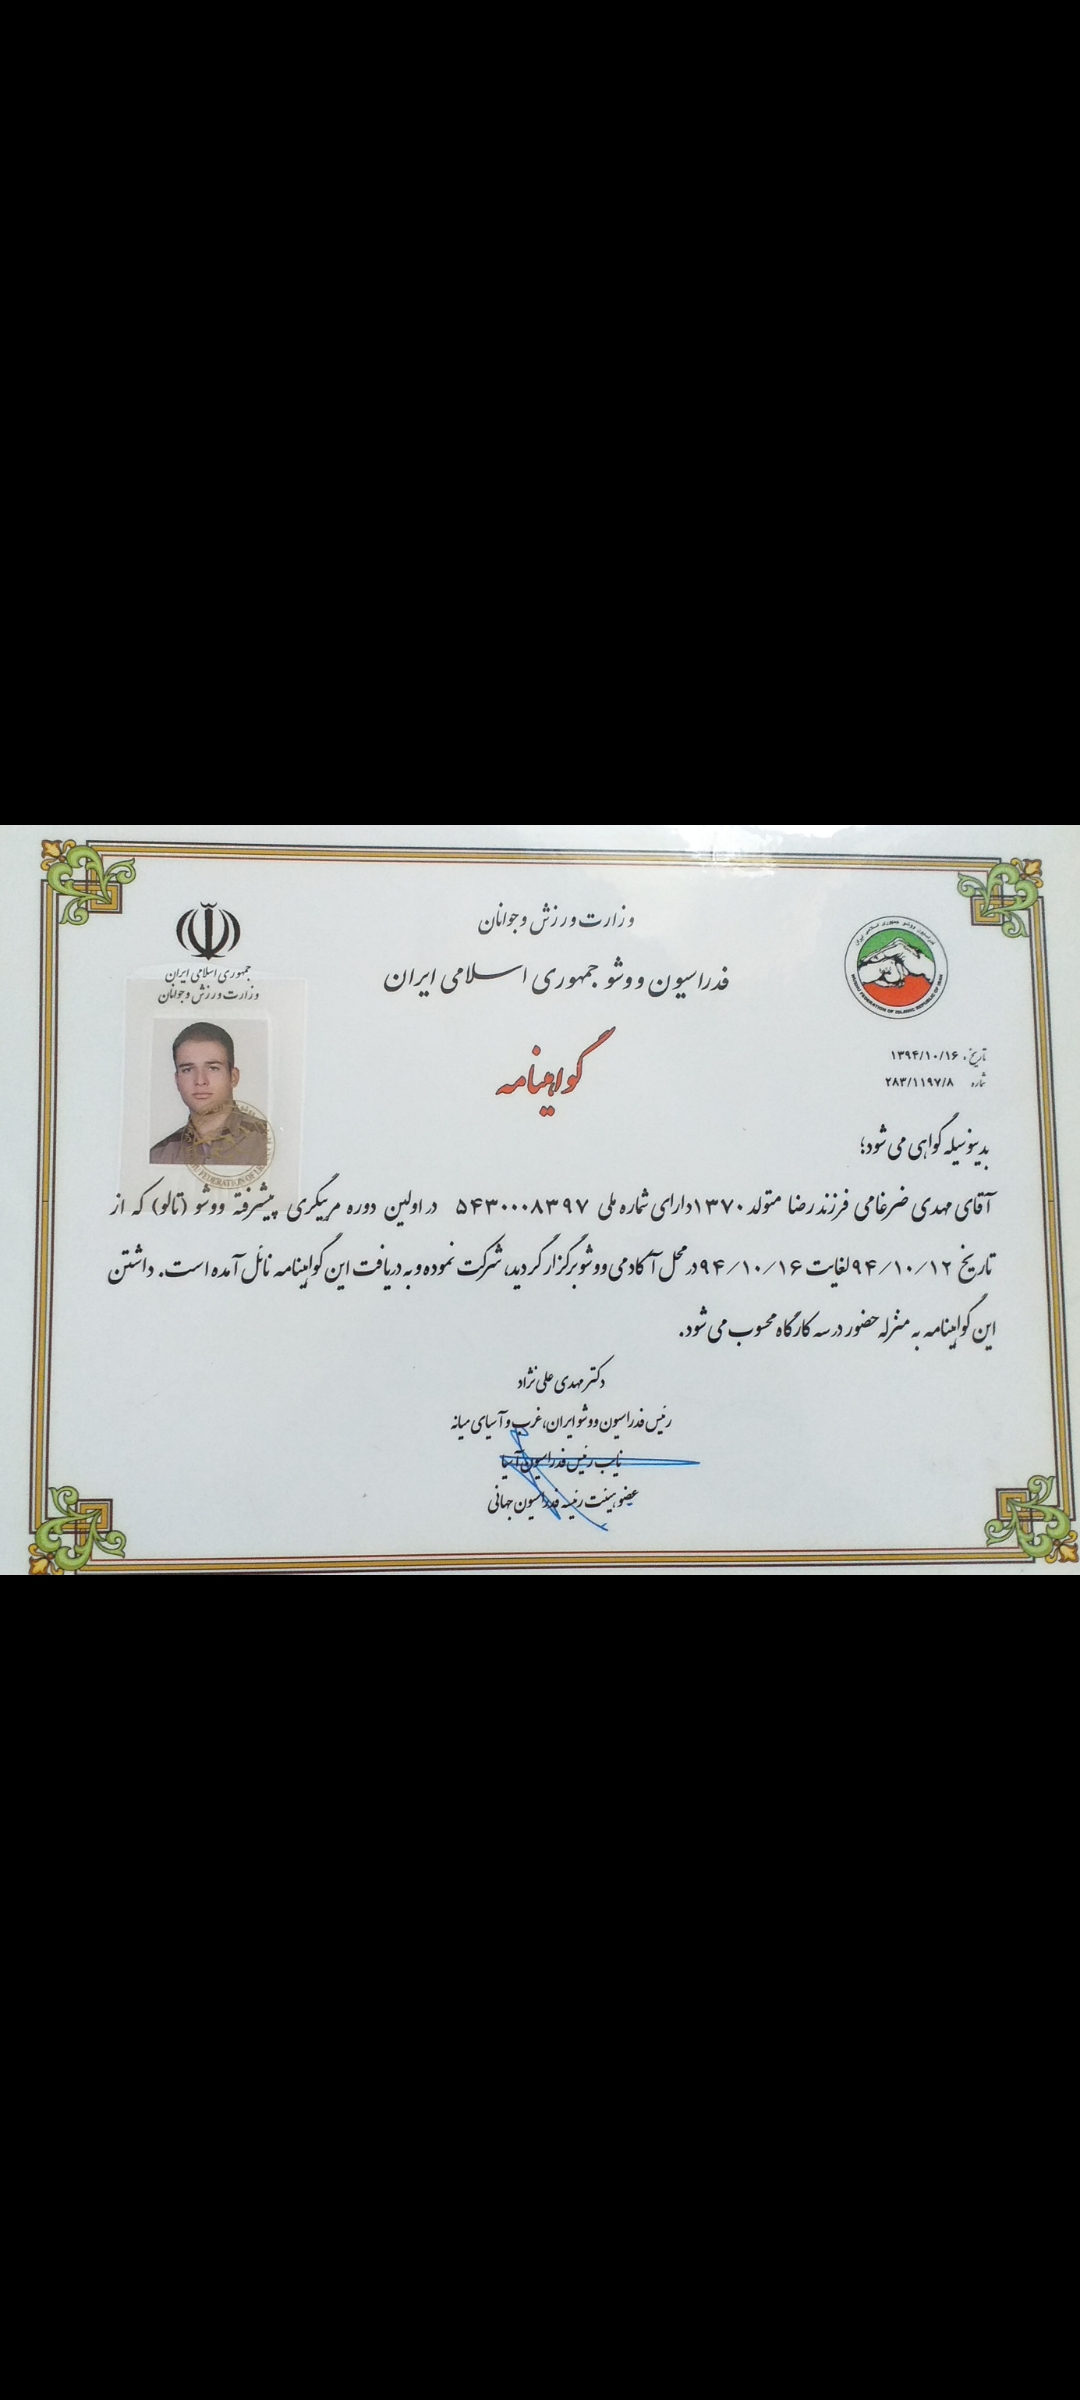 وزارت ورزش و جوانان
فدراسیون ووشو جمهوری اسلامی ایران
جمهوری اسلامی ایران
وزارت ورزش و جوانان
WUSHU FEDERATION OF ISLAMIC REPUBLIC OF IRAN
گواهینامه
تاریخ: ۱۳۹۴/۱۰/۱۶
شماره ۲۸۳/۱۱۹۷/۸
بدینوسیله گواهی می شود؛
آقای مهدی ضرغامی فرزند رضا متولد ۱۳۷۰ دارای شماره ملی ۵۴۳۰۰۰۸۳۹۷ در اولین دوره مربیگری پیشرفته ووشو (تالو) که از
تاریخ ۹۴/۱۰/۱۲ لغایت ۹۴/۱۰/۱۶ در محل آکادمی ووشو برگزار گردید، شرکت نموده و به دریافت این گواهینامه نائل آمده است. داشتن
این گواهینامه به منزله حضور در سه کارگاه محسوب می شود.
دکتر مهدی علی نژاد
رئیس فدراسیون ووشو ایران، غرب و آسیای میانه
نایب رئیس فدراسیون آسیا
عضو هیئت رئیسه فدراسیون جهانی